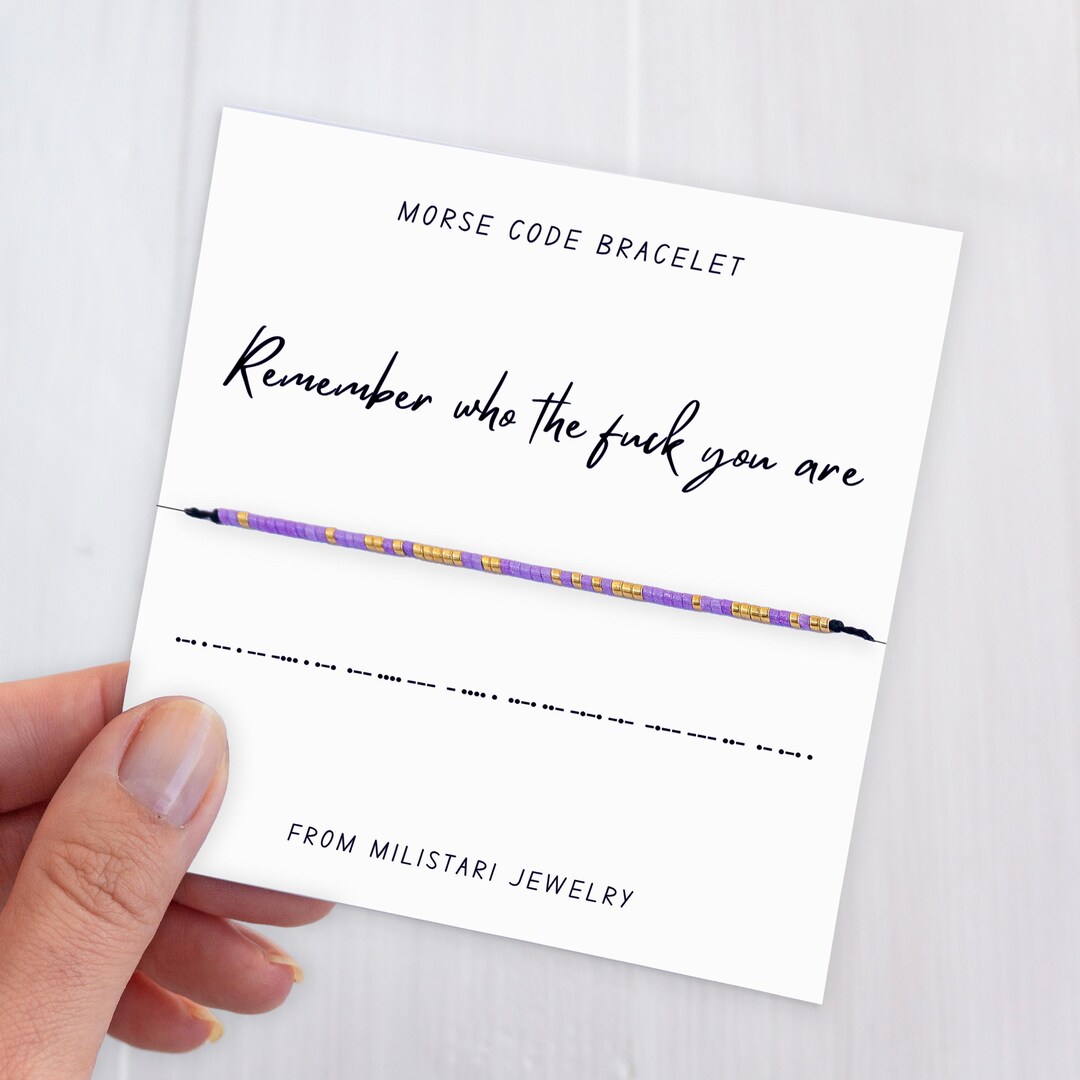 MORSE CODE BRACELET
Remember who the fuck you are
•–• • –– • –– –••• • •–• •–– •••• ––– – •••• • ••–• ••– –•–• –•– –•–– ––– ••– •– •–• •
FROM MILISTARI JEWELRY